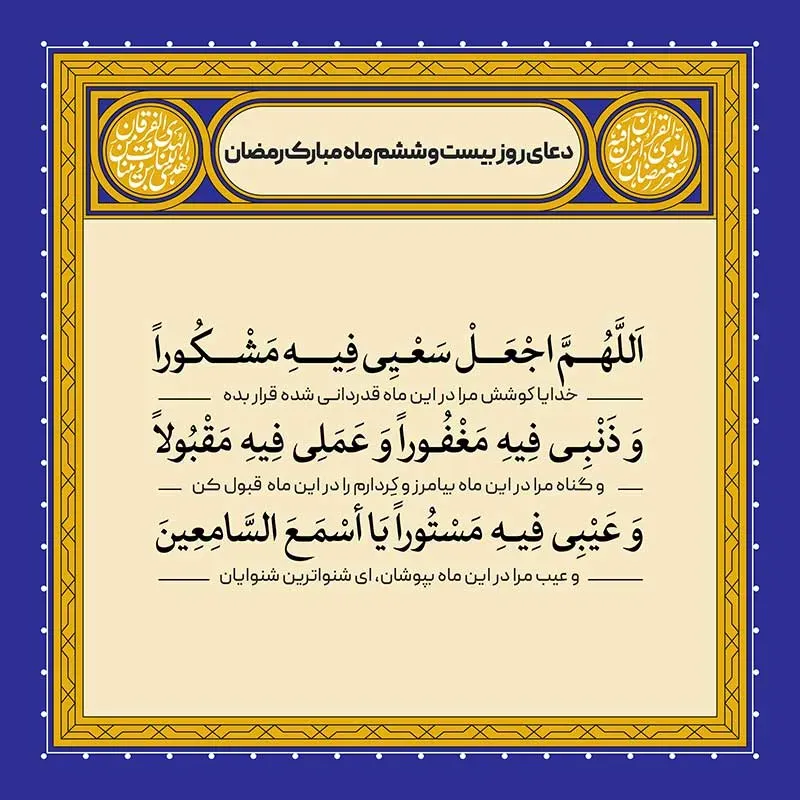 دعای روز بیست و ششم ماه مبارک رمضان
شهر رمضان الذی انزل فیه القرآن
اَللَّهُمَّ اجْعَلْ سَعْیِی فِیهِ مَشْکُوراً
خدایا کوشش مرا در این ماه قدردانی شده قرار بده
وَ ذَنْبِی فِیهِ مَغْفُوراً وَ عَمَلِی فِیهِ مَقْبُولاً
و گناه مرا در این ماه بیامرز و کِردارم را در این ماه قبول کن
وَ عَیْبِی فِیهِ مَسْتُوراً یَا أَسْمَعَ السَّامِعِینَ
و عیب مرا در این ماه بپوشان، ای شنواترین شنوایان